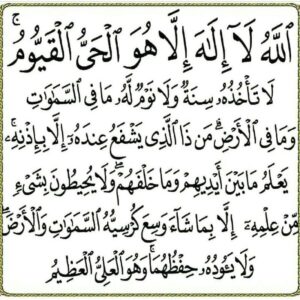 اَللّٰهُ لَآ إِلٰهَ إِلَّا هُوَ الْحَىُّ الْقَيُّوْمُ ۚ
لَا تَأْخُذُهُ سِنَةٌ وَلَا نَوْمٌ لَهُ مَا فِى السَّمَاوَاتِ
وَمَا فِى الْأَرْضِ ۗ مَن ذَا الَّذِى يَشْفَعُ عِندَهُ إِلَّا بِإِذْنِهِ ۚ
يَعْلَمُ مَا بَيْنَ أَيْدِيهِمْ وَمَا خَلْفَهُمْ ۖ وَلَا يُحِيطُونَ بِشَىْءٍ
مِّنْ عِلْمِهِ إِلَّا بِمَا شَآءَ وَسِعَ كُرْسِيُّهُ السَّمَاوَاتِ وَالْأَرْضَ ۖ
وَلَا يَـُٔودُهُ حِفْظُهُمَا وَهُوَ الْعَلِىُّ الْعَظِيْمُ